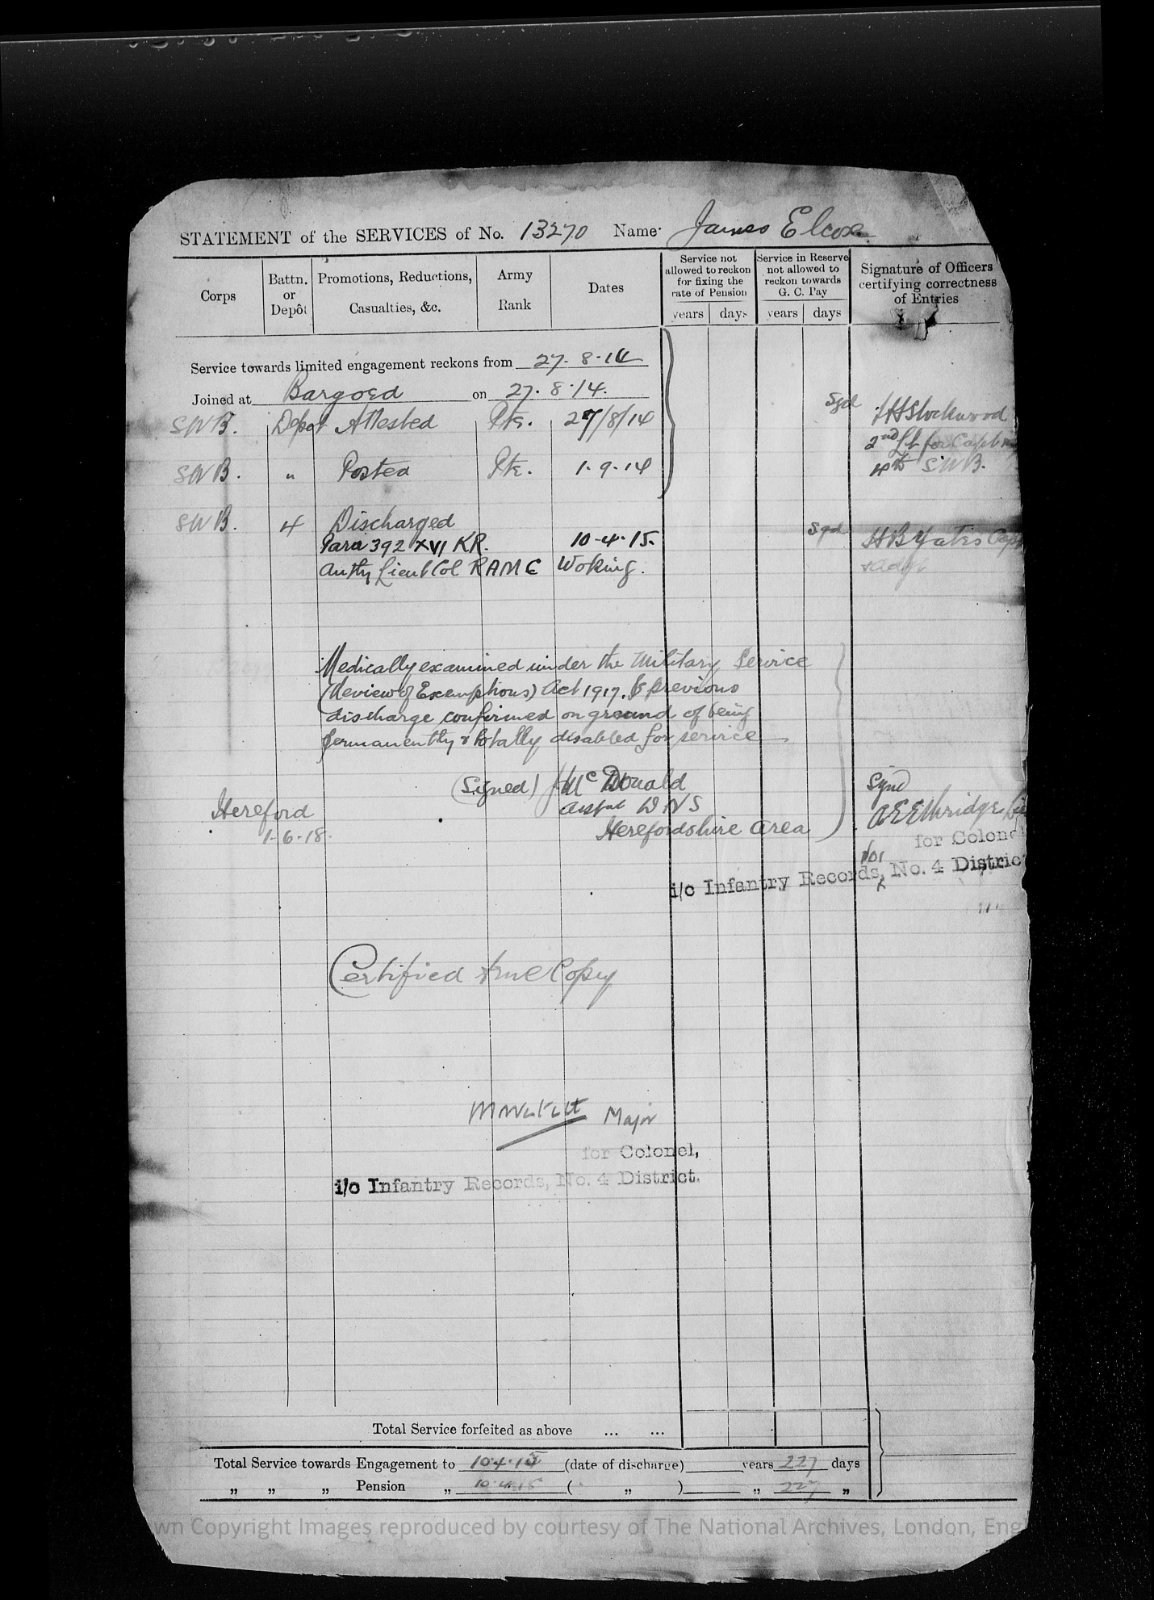 STATEMENT of the SERVICES of No. 13270 Name James Elcox
Corps
Battn. or Depôt
Promotions, Reductions, Casualties, &c.
Army Rank
Dates
Service not allowed to reckon for fixing the rate of Pension
years days
Service in Reserve not allowed to reckon towards G. C. Pay
years days
Signature of Officers certifying correctness of Entries
Service towards limited engagement reckons from 27.8.14
Joined at Bargoed on 27.8.14.
SWB. Depot Attested Pte. 27/8/14 Sgd
2nd Lt for Capt
4th SWB.
SWB. " Posted Pte. 1.9.14
SWB. 4 Discharged
Para 392 XVI KR. 10-4-15. Sgd HB Yates Capt
Authy Lieut Col RAMC Woking. & Adjt
Medically examined under the Military Service
(Review of Exemptions) Act 1917. & previous
discharge confirmed on ground of being
permanently & totally disabled for service
(Signed) J McDonald
Herefordshire Area
Hereford
1-6-18.
Signd
A E Ethridge
for Colonel
i/c Infantry Records, No. 4 District
Certified true Copy
Major
for Colonel,
i/c Infantry Records, No. 4 District.
Total Service forfeited as above ... ...
Total Service towards Engagement to 10.4.15 (date of discharge) years 227 days
„ „ „ Pension „ 10.4.15 ( „ ) „ 227 „
wn Copyright Images reproduced by courtesy of The National Archives, London, Eng